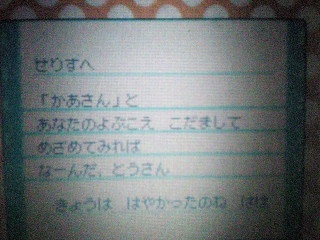 せりすへ
「かあさん」と
あなたのよぶこえ　こだまして
めざめてみれば
なーんだ、とうさん
きょうは　はやかったのね　はは